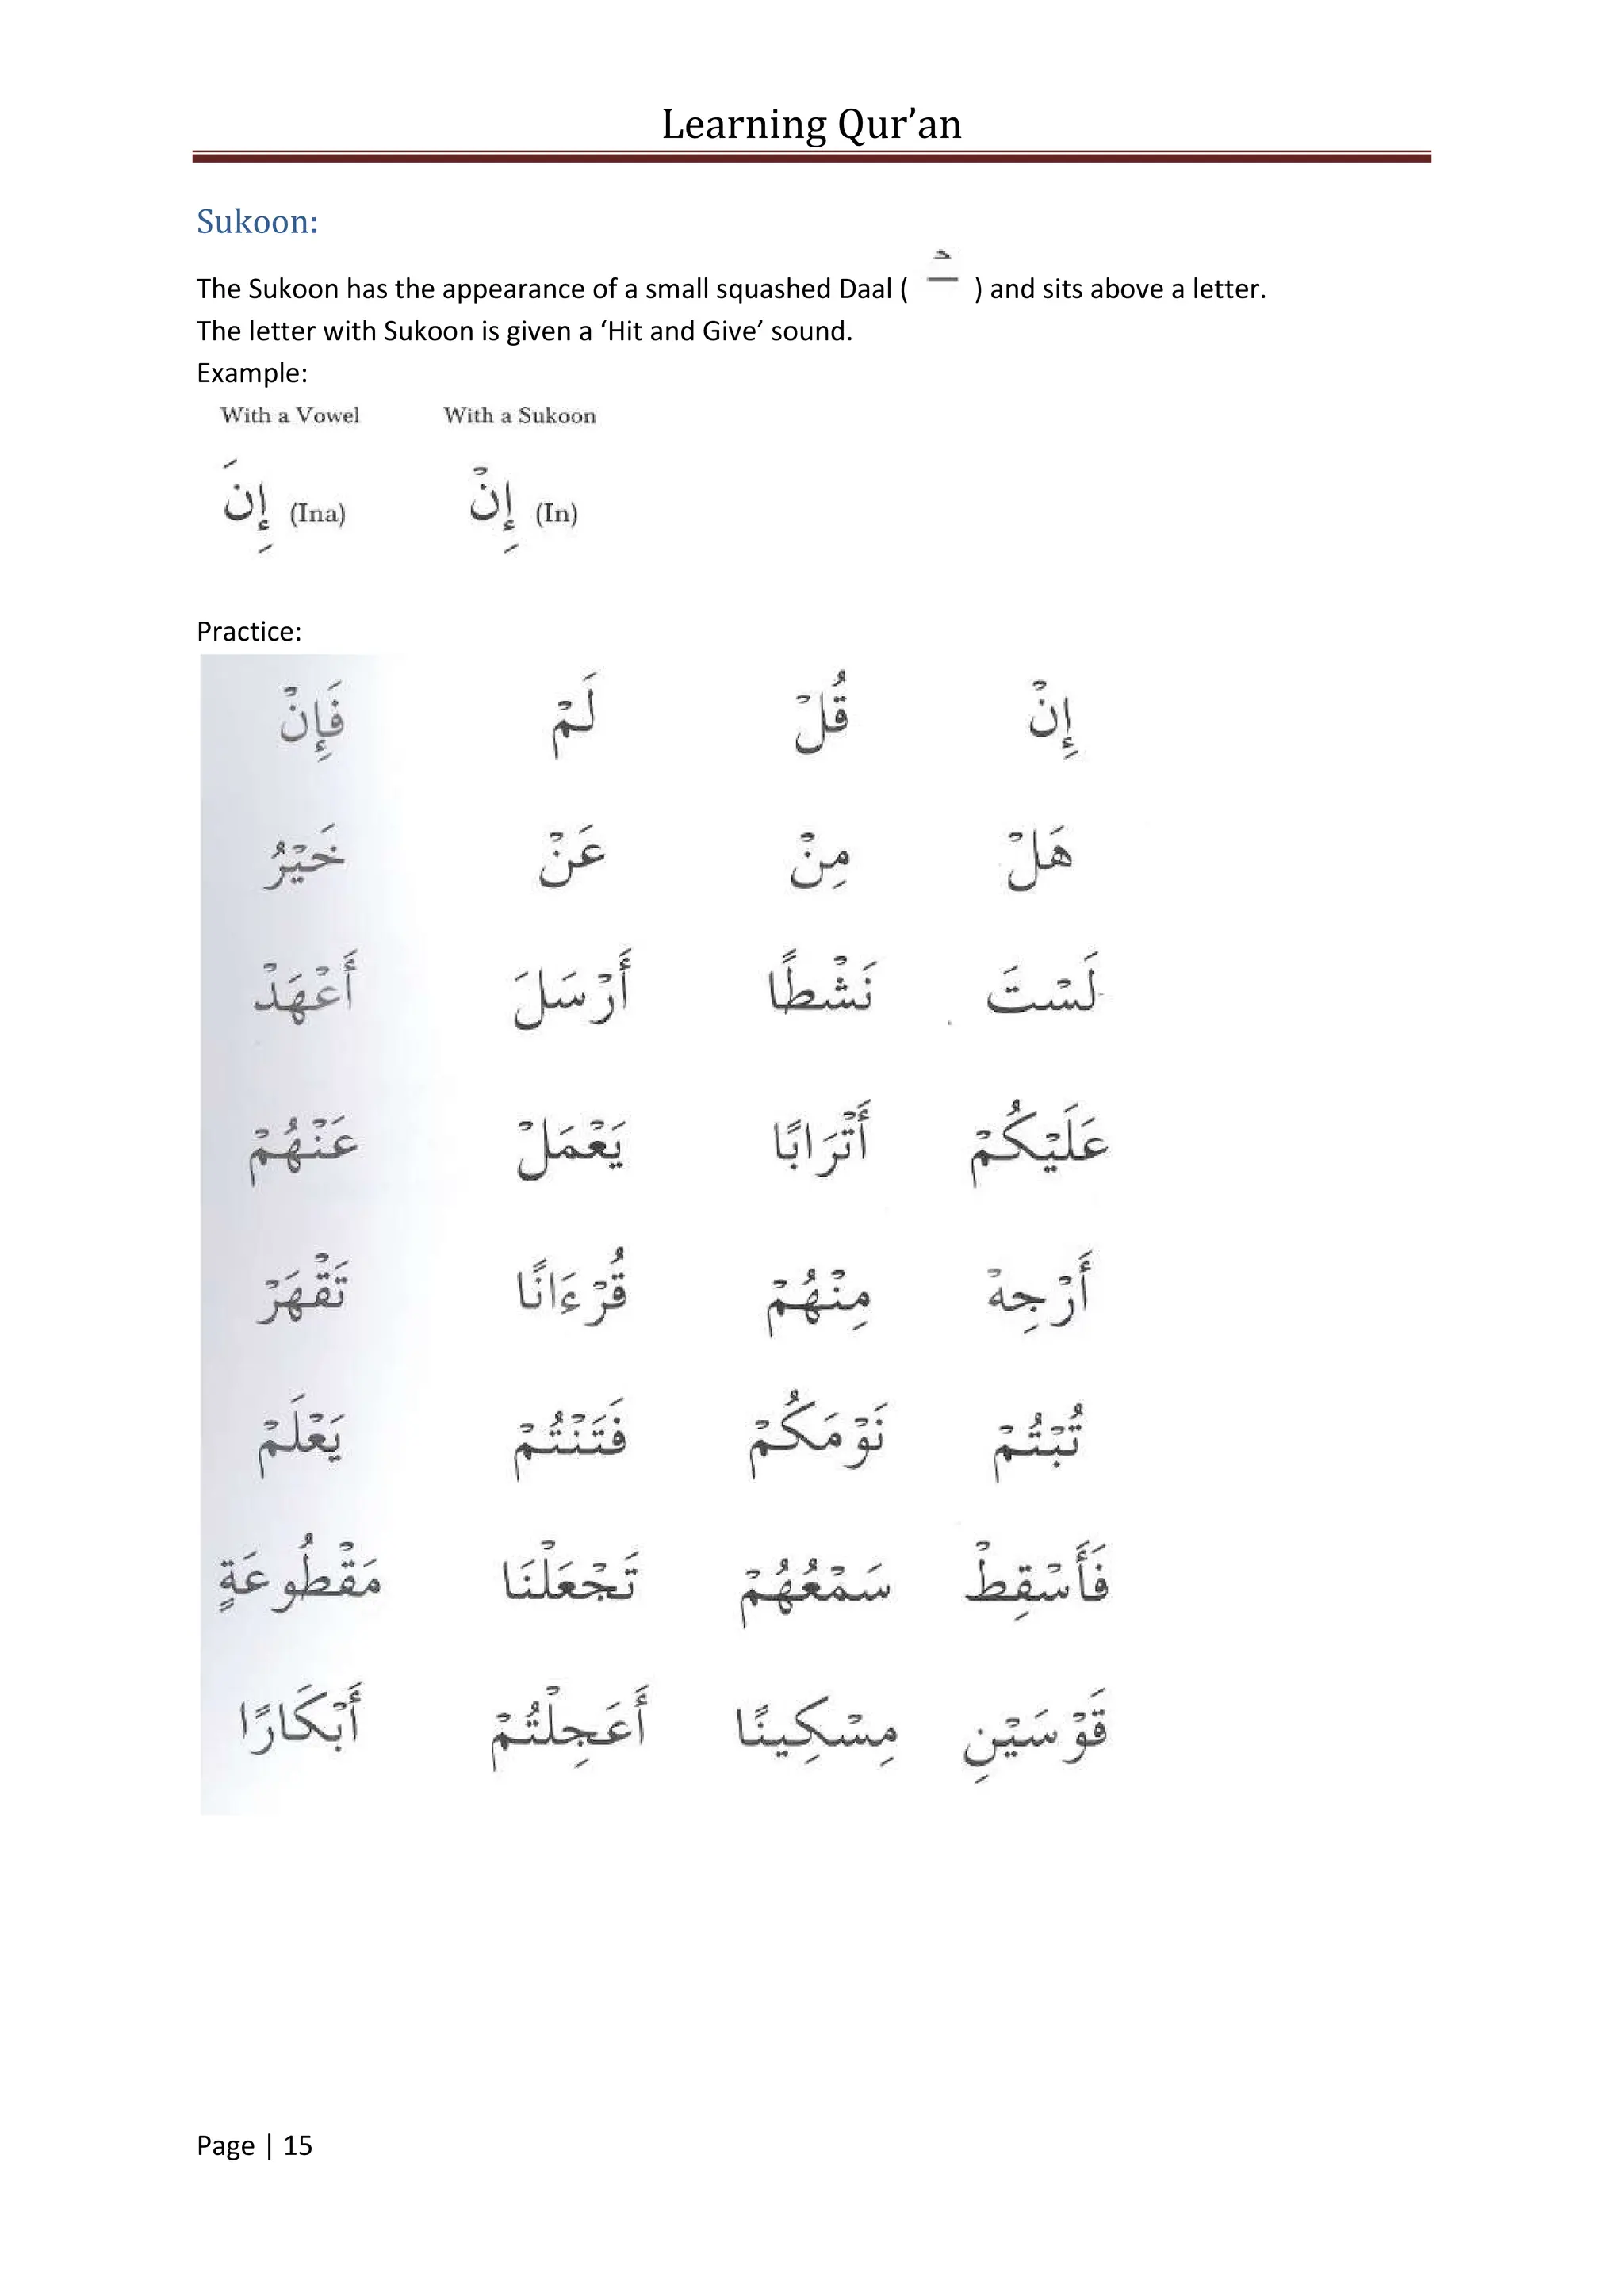 Learning Qur’an
Sukoon:
The Sukoon has the appearance of a small squashed Daal ( ـْ ) and sits above a letter.
The letter with Sukoon is given a ‘Hit and Give’ sound.
Example:
With a Vowel With a Sukoon
إِنَ (Ina) إِنْ (In)
Practice:
إِنْ قُلْ لَمْ فَإِنْ
هَلْ مِنْ عَنْ خَيْرُ
لَسْتَ نَشْطًا أَرْسَلَ أَعْهَدْ
عَلَيْكُمْ أَتْرَابًا يَعْمَلْ عَنْهُمْ
أَرْجِهْ مِنْهُمْ قُرْءَانًا تَقْهَرْ
تُبْتُمْ نَوْمَكُمْ فَتَنْتُمْ يَعْلَمْ
فَأَسْقِطْ سَمْعُهُمْ تَجْعَلْنَا مَقْطُوعَةٍ
قَوْسَيْنِ مِسْكِينًا أَعَجِلْتُمْ أَبْكَارًا
Page | 15